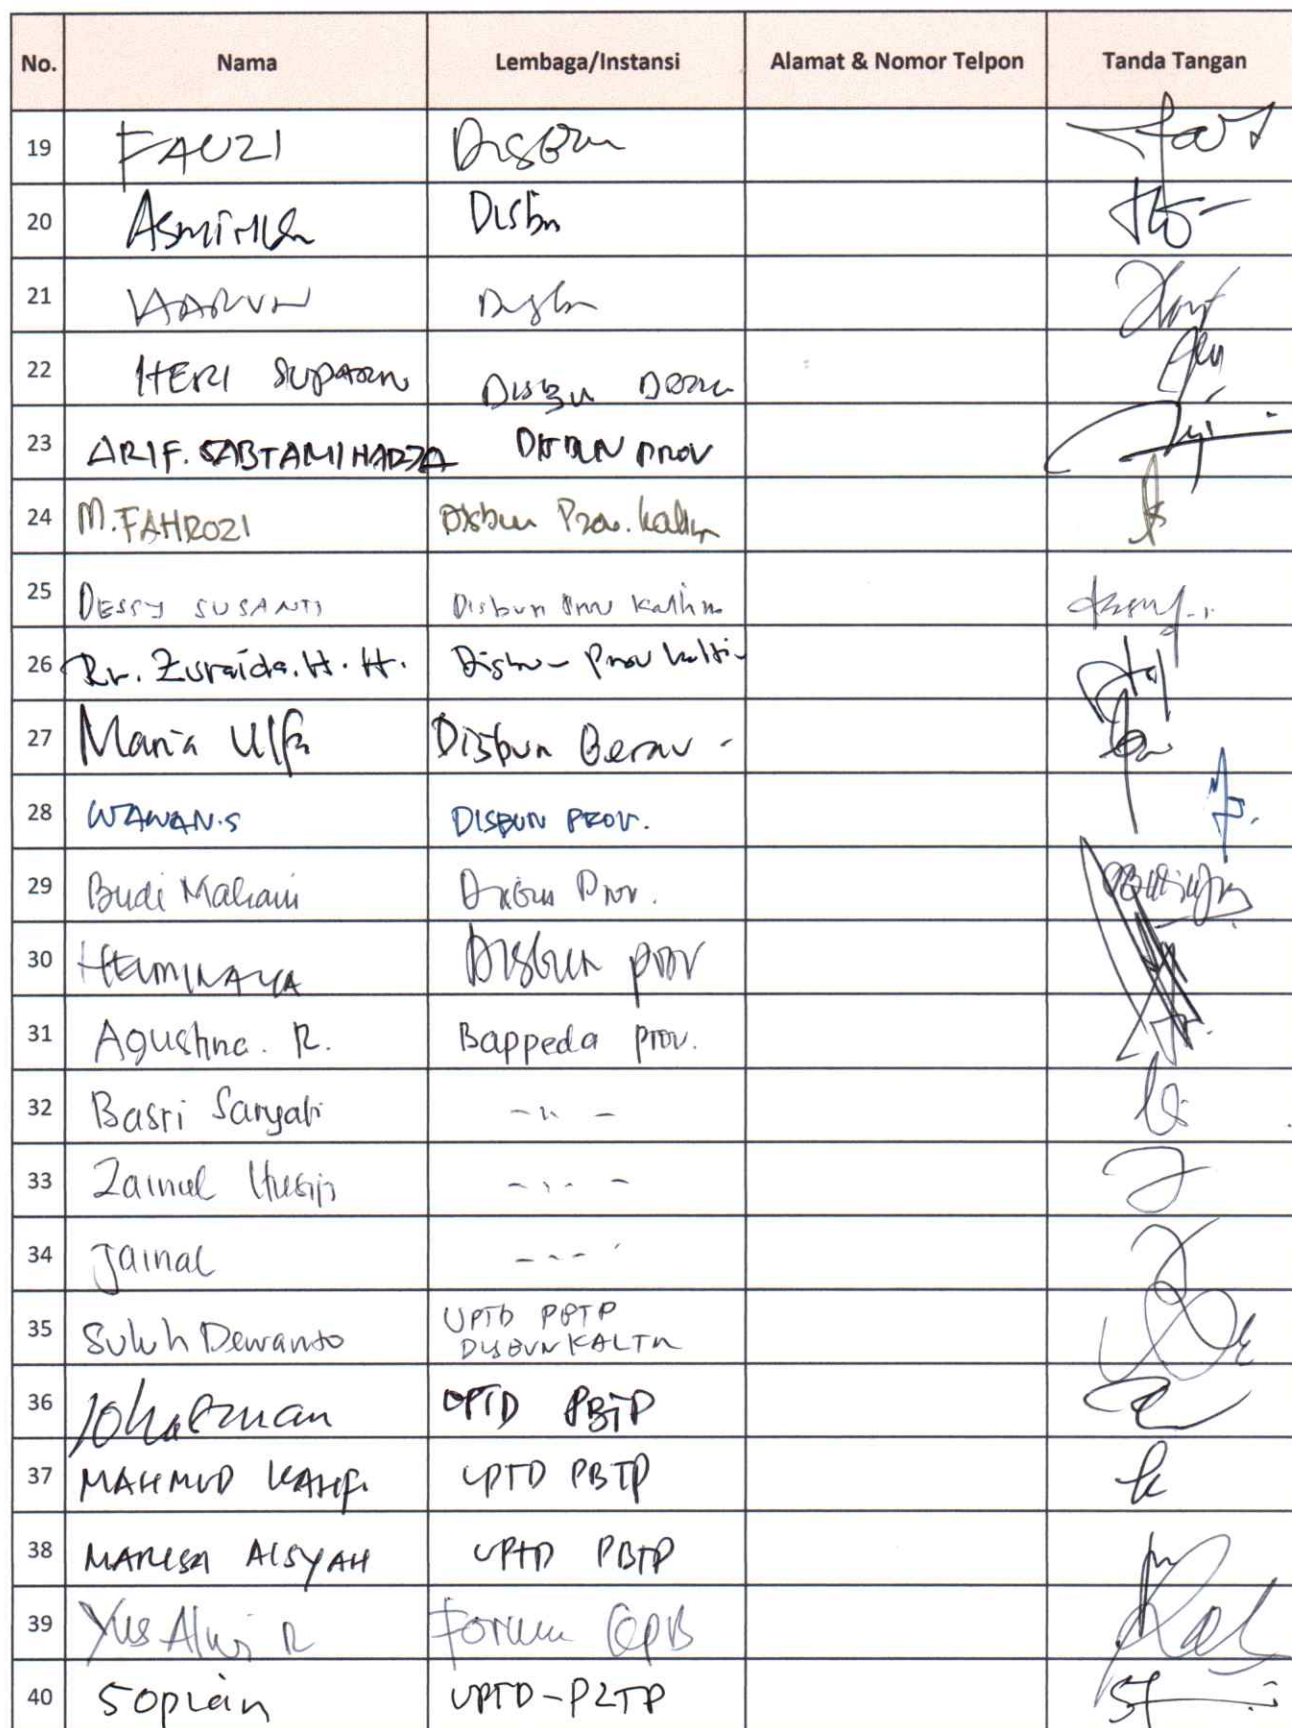 No. Nama Lembaga/Instansi Alamat & Nomor Telpon Tanda Tangan
19 FAUZI Disbun
20 Disbun
21 HARUN Disbun
22 HERI SUPARN Disbun
23 ARIF. SABTAMIHARJA DISBUN PROV
24 M. FAHROZI Disbun Prov. Kaltim
25 DESSY SUSANTI Disbun Prov Kaltim
26 Rr. Zuraida. H. H. Disbun Prov Kaltim
27 Maria Ulfa Disbun Berau -
28 WAWAN.S DISBUN PROV.
29 Budi Disbun Prov.
30 Disbun prov
31 Agustina. R. Bappeda prov.
32 Basri Sangati - " -
33 Zainul - " -
34 Jainal - " -
35 Suluh Dewanto UPTD PBTP
DISBUN KALTIM
36 UPTD PBTP
37 MAHMUD KAHFI UPTD PBTP
38 MARISA AISYAH UPTD PBTP
39 Yus Alwi R Forum
40 Sopian UPTD-P2TP